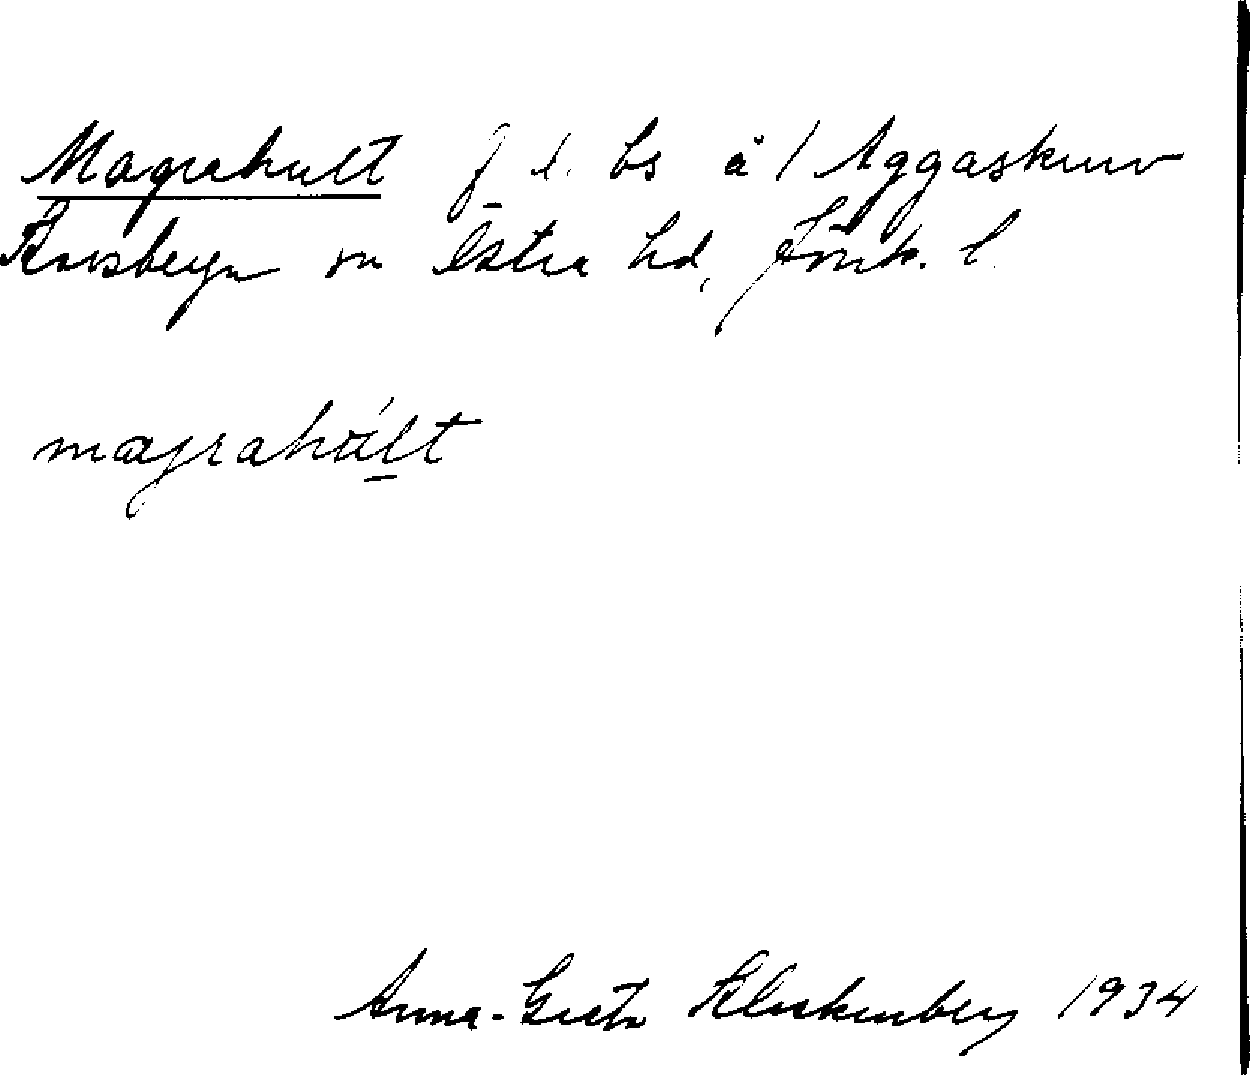 Magrahult f. d. bs å 1 Aggaskurv
Korsberga sn Östra hd, Jönk. l.
magrahúlt
Anna-Greta Klockenberg 1934